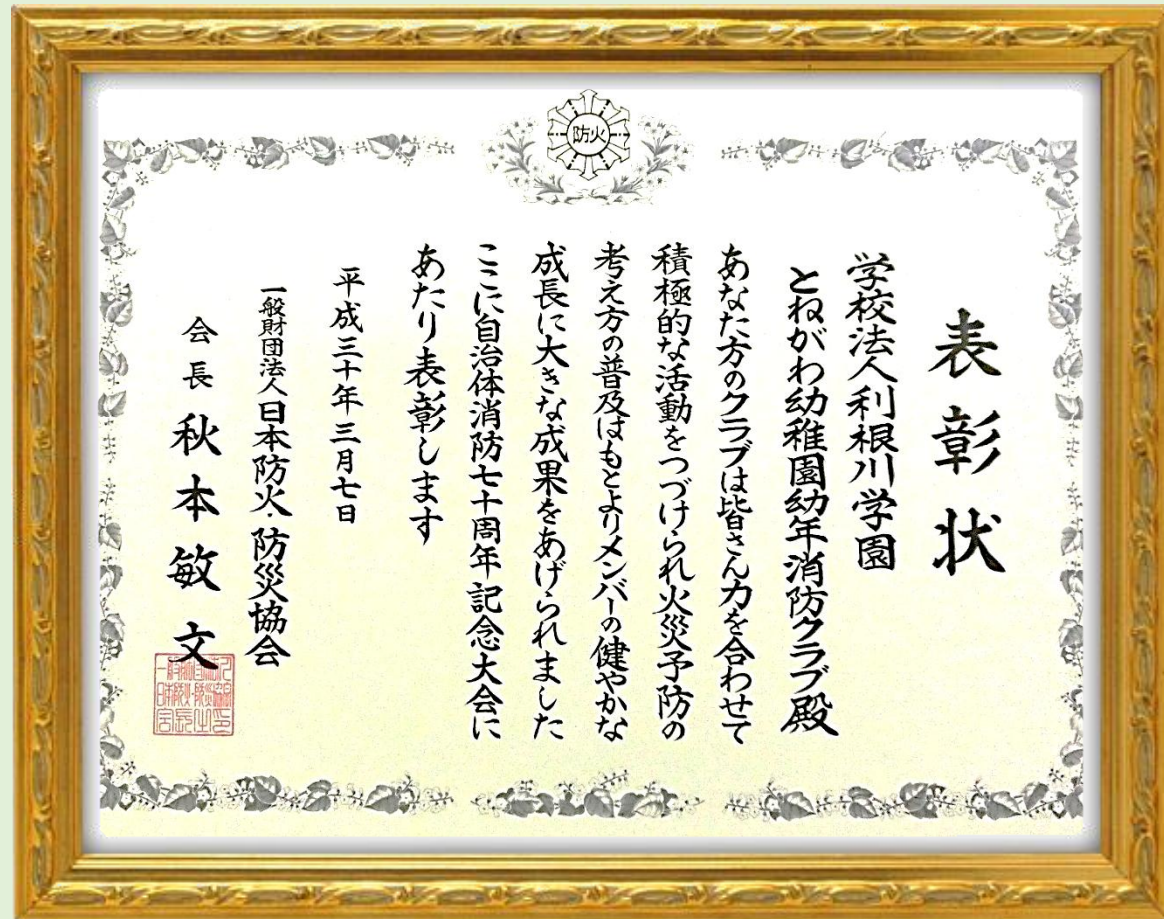 防火
表彰状
学校法人利根川学園
とねがわ幼稚園幼年消防クラブ殿
あなた方のクラブは皆さん力を合わせて
積極的な活動をつづけられ火災予防の
考え方の普及はもとよりメンバーの健やかな
成長に大きな成果をあげられました
ここに自治体消防七十周年記念大会に
あたり表彰します
平成三十年三月七日
一般財団法人日本防火・防災協会
会長 秋本敏文